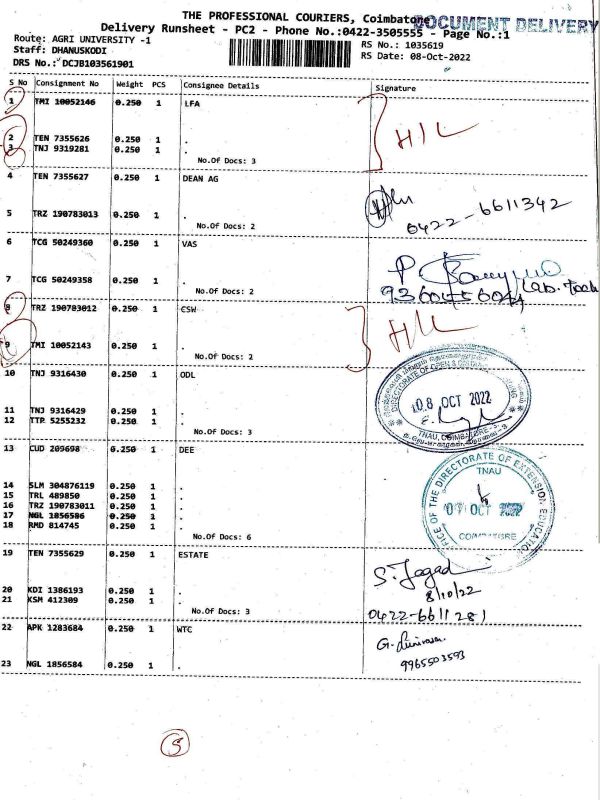 THE PROFESSIONAL COURIERS, Coimbatore
DOCUMENT DELIVERY
Delivery Runsheet - PC2 - Phone No.:0422-3505555 - Page No.:1
Route: AGRI UNIVERSITY -1
RS No.: 1035619
Staff: DHANUSKODI
RS Date: 08-Oct-2022
DRS No.: DCJB103561901
S No Consignment No Weight PCS Consignee Details Signature
1 TMI 10052146 0.250 1 LFA
H/L
2 TEN 7355626 0.250 1 .
3 TNJ 9319281 0.250 1 .
No.Of Docs: 3
4 TEN 7355627 0.250 1 DEAN AG
5 TRZ 190783013 0.250 1 .
0422-6611342
No.Of Docs: 2
6 TCG 50249360 0.250 1 VAS
7 TCG 50249358 0.250 1 .
No.Of Docs: 2
Lab. Tech
8 TRZ 190783012 0.250 1 CSW
H/L
9 TMI 10052143 0.250 1 .
No.Of Docs: 2
10 TNJ 9316430 0.250 1 ODL
08 OCT 2022
11 TNJ 9316429 0.250 1 .
12 TTR 5255232 0.250 1 .
No.Of Docs: 3
TNAU, COIMBATORE
13 CUD 209698 0.250 1 DEE
OFFICE OF THE DIRECTORATE OF EXTENSION EDUCATION
TNAU
14 SLM 304876119 0.250 1 .
15 TRL 489850 0.250 1 .
16 TRZ 190783011 0.250 1 .
OCT 2022
17 NGL 1856586 0.250 1 .
18 RMD 814745 0.250 1 .
No.Of Docs: 6
COIMBATORE
19 TEN 7355629 0.250 1 ESTATE
S. Jagad
20 KDI 1386193 0.250 1 .
8/10/22
21 KSM 412309 0.250 1 .
No.Of Docs: 3
0422-6611281
22 APK 1283684 0.250 1 WTC
23 NGL 1856584 0.250 1 .
9965503593
5